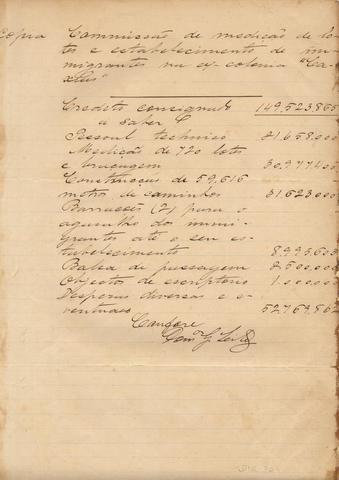 Copia Commissão de medição de lo-
tes e estabelecimento de im-
migrantes na ex-colonia "Ca-
xias"
Credito consignado 149,523,865
a saber
Pessoal technico 21,658,000
Medição de 720 lotes
e 30,977,400
Construcção de 59,616
metros de caminhos 31,623,000
Barracões (2) para o
agasalho dos immi-
grantes até o seu es-
tabelecimento 8,995,603
Balsa de passagem 2,500,000
Objectos de escriptorio 1,000,000
Despezas diversas e e-
ventuaes 52,769,862
Confere